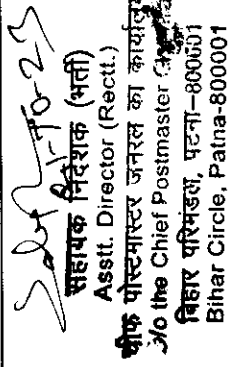 सहायक निदेशक (भर्ती)
Asstt. Director (Rectt.)
चीफ पोस्टमास्टर जनरल का कार्यालय
O/o the Chief Postmaster
बिहार परिमंडल, पटना-800001
Bihar Circle, Patna-800001